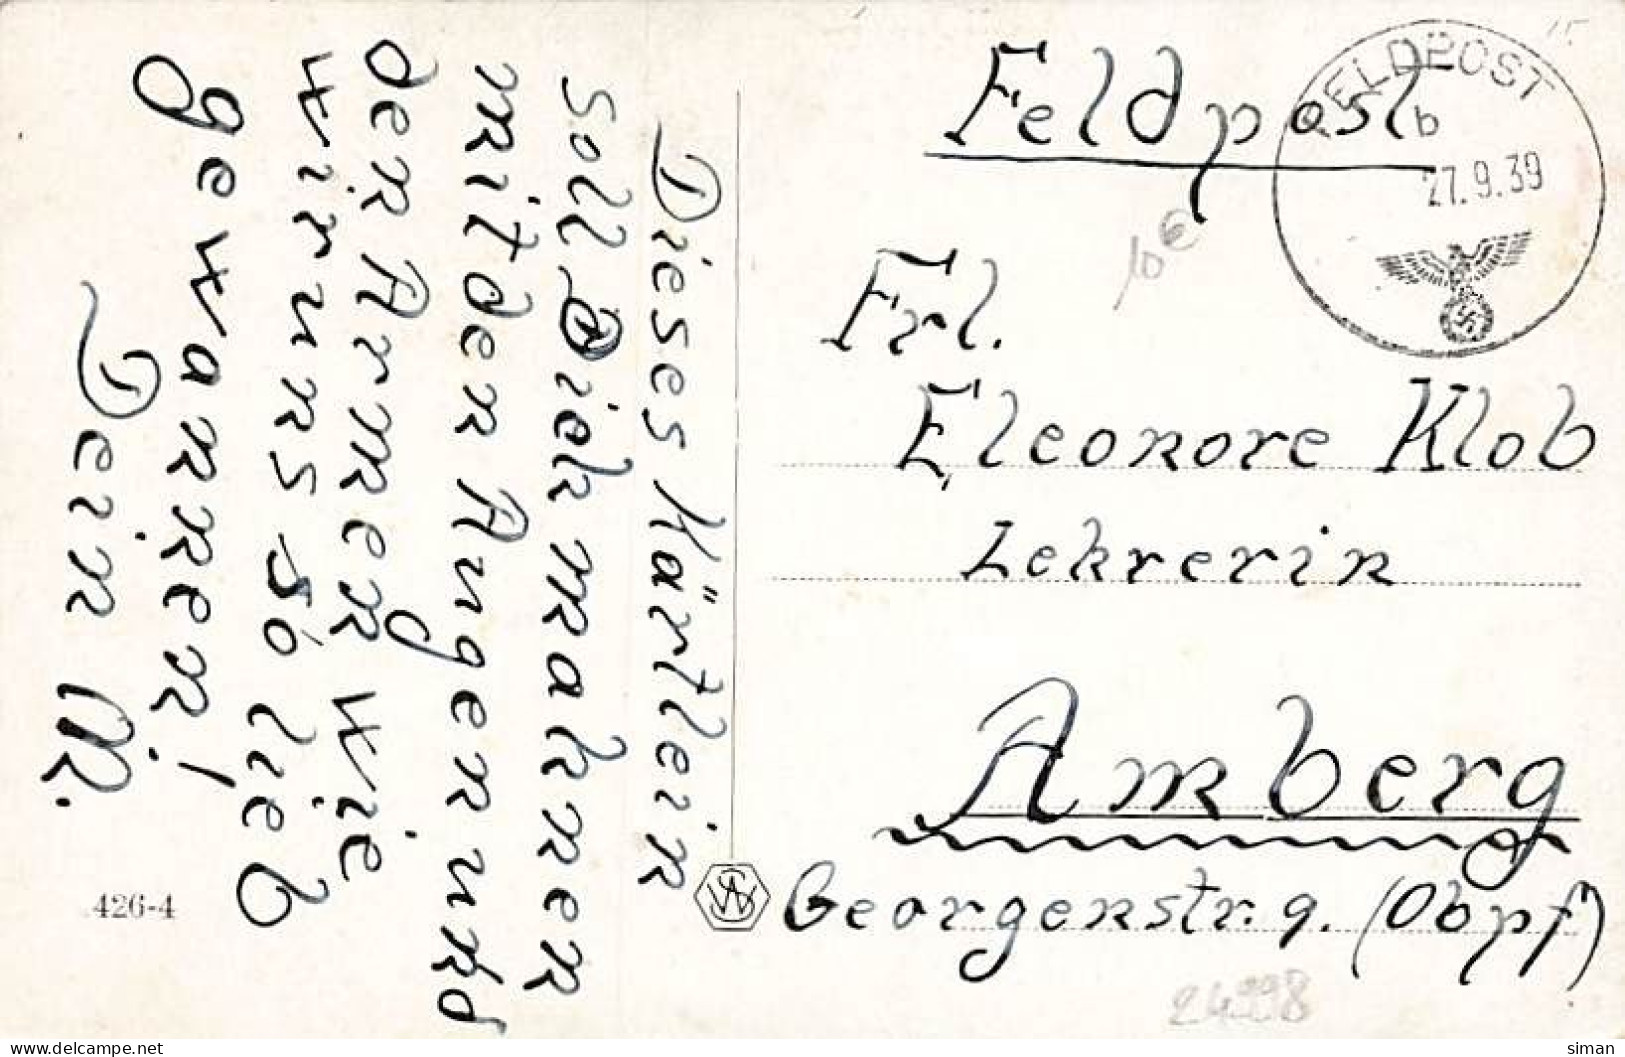 Dieses Kärtlein
soll Dich mahnen
mit den Augen und
den Armen wie
wir uns so lieb
gewannen!
Dein M.
426-4
Feldpost
FELDPOST
b
27.9.39
10 €
Frl.
Eleonore Klob
Lehrerin
Amberg
Georgenstr. 9. (Obpf)
simanek.eu